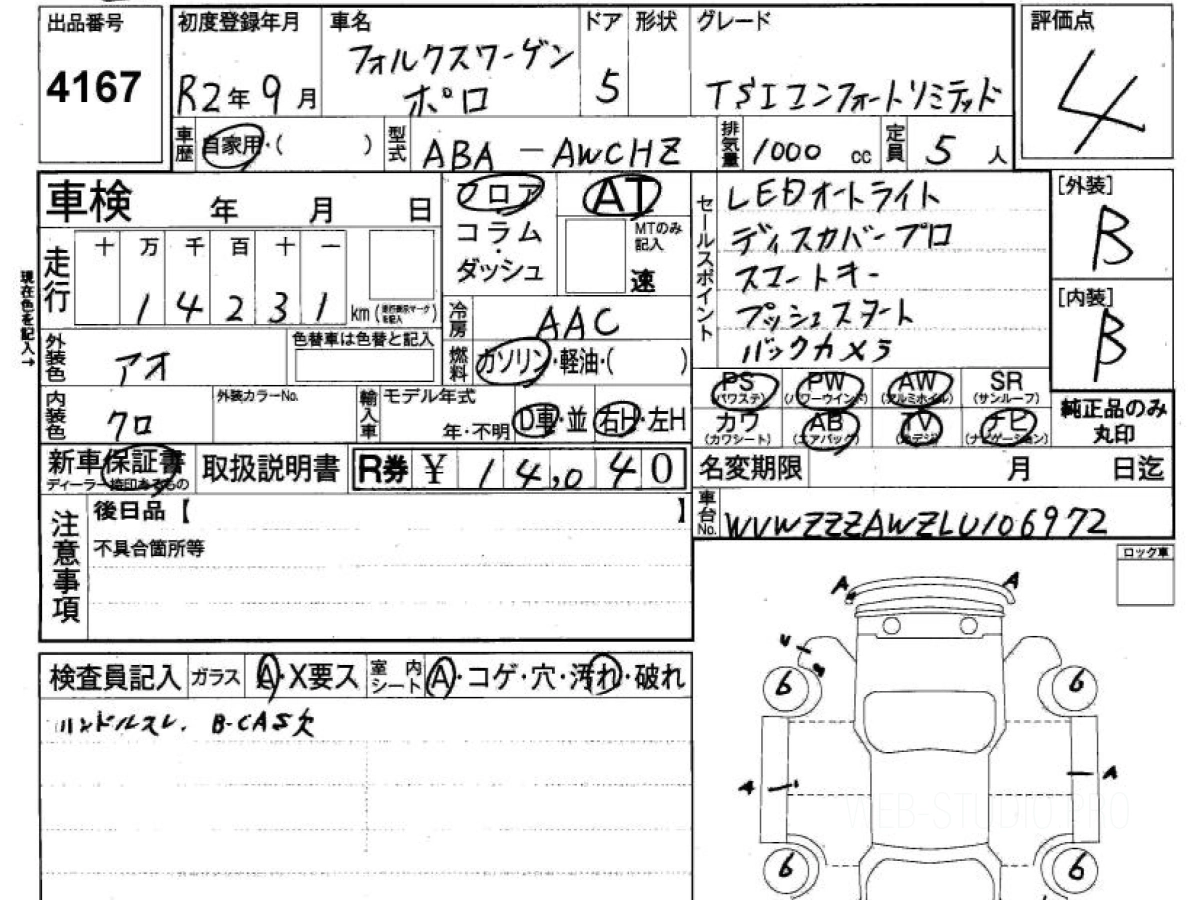 出品番号
4167
初度登録年月
R2年9月
車名
フォルクスワーゲン
ポロ
ドア
5
形状
グレード
TSIコンフォートリミテッド
評価点
4
車歴
自家用・( )
型式
ABA - AWCHZ
排気量
1000 cc
定員
5 人
車検 年 月 日
フロア
コラム
・
ダッシュ
AT
MTのみ
記入
速
セールスポイント
LEDオートライト
ディスカバープロ
スマートキー
プッシュスタート
バックカメラ
[外装]
B
[内装]
B
現在色を記入→
走行
十 万 千 百 十 一
1 4 2 3 1
km
冷房
AAC
外装色
アオ
色替車は色替と記入
燃料
ガソリン・軽油・( )
内装色
クロ
外装カラーNo.
輸入車
モデル年式
年・不明
D車・並
右H・左H
PS
(パワステ)
PW
(パワーウインド)
AW
(アルミホイル)
SR
(サンルーフ)
カワ
(カワシート)
AB
(エアバック)
TV
ナビ
(ナビゲーション)
純正品のみ
丸印
新車保証書
ディーラー捺印あるもの
取扱説明書
R券 ¥ 14,040
名変期限 月 日迄
車台No.
WVWZZZAWZLU106972
注意事項
後日品【 】
不具合箇所等
ロック車
検査員記入
ガラス
A・X要ス
室内
シート
A・コゲ・穴・汚れ・破れ
ハンドルスレ. B-CAS欠
A A
U
B
6 6
A A
6 6
WEB-STUDIO PRO